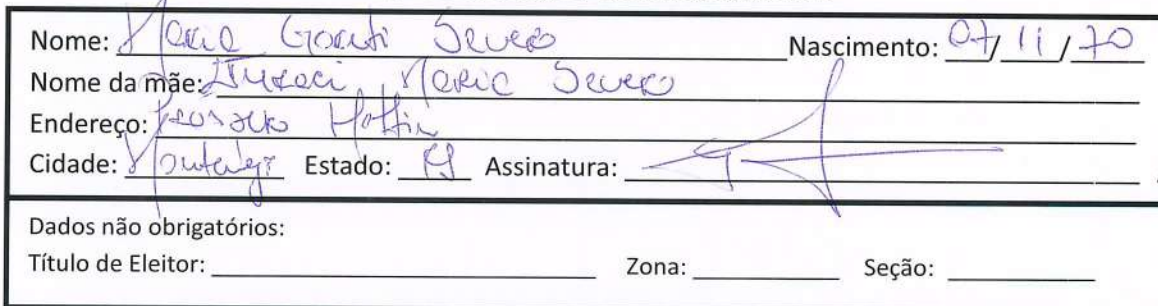 Nome: Maria Goreti Severo Nascimento: 07/11/70
Nome da mãe: Juraci Maria Severo
Endereço:
Cidade: Estado: Assinatura:
Dados não obrigatórios:
Título de Eleitor: Zona: Seção: